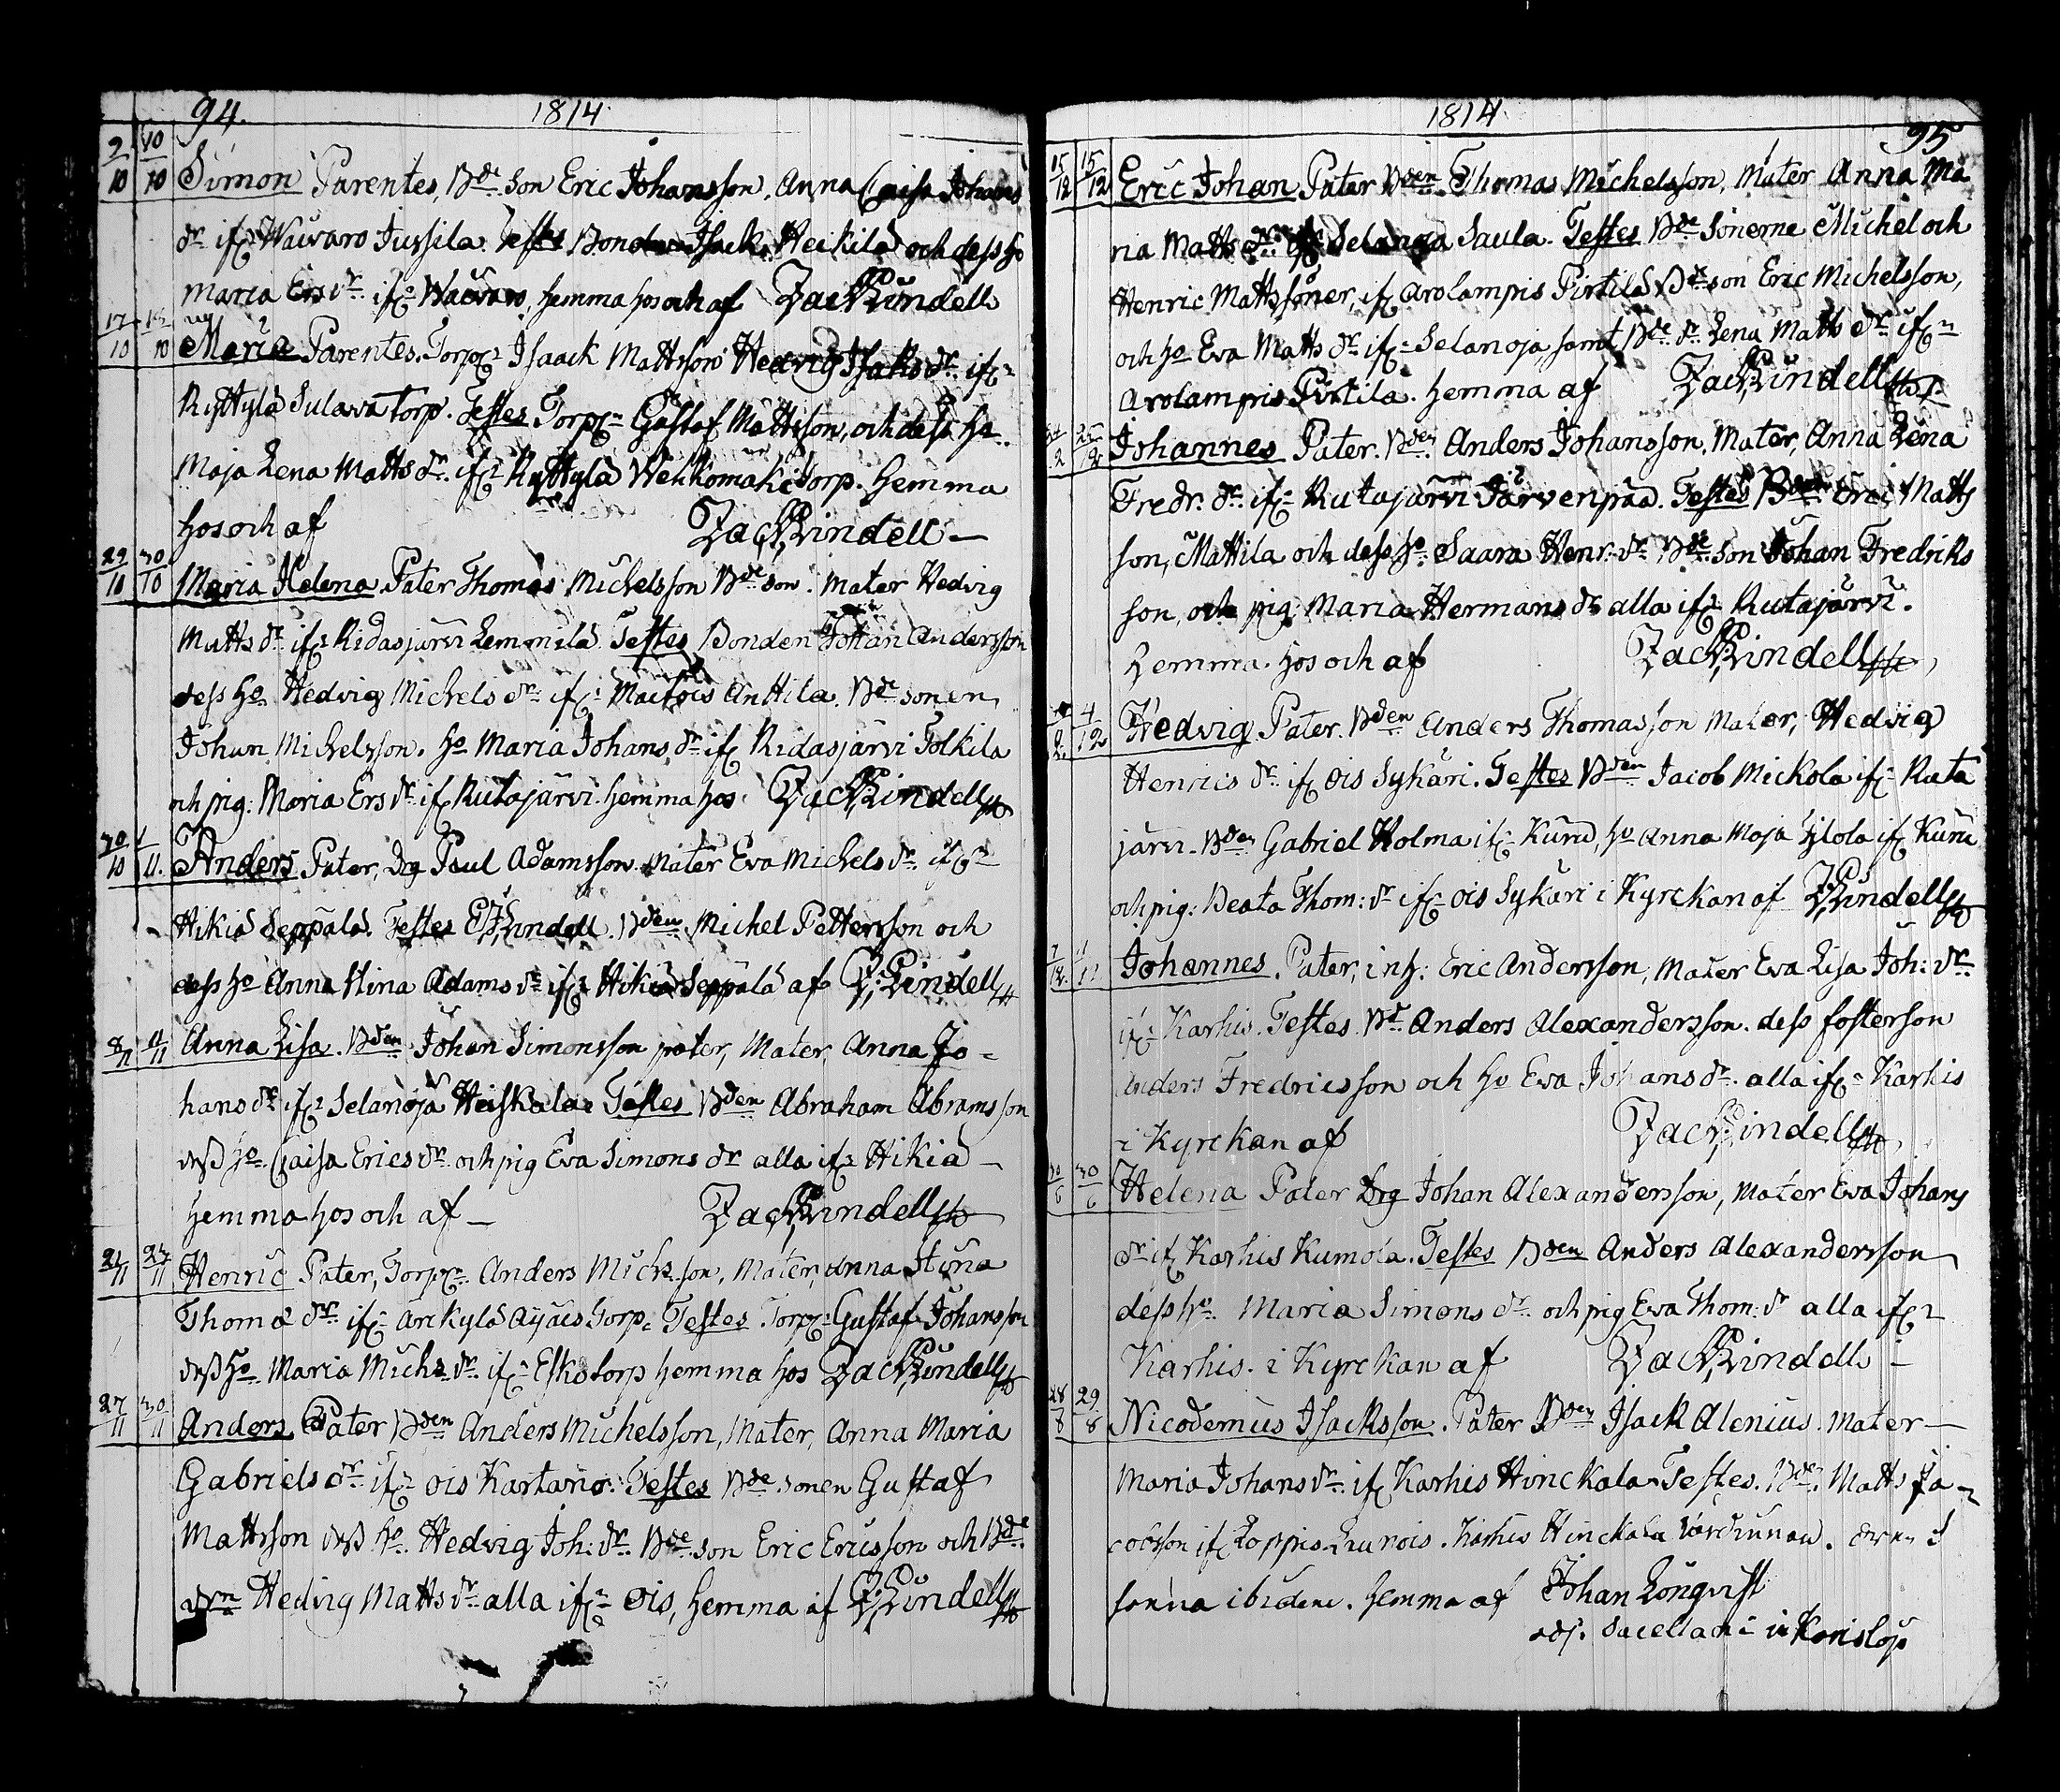 94. 1814
9/10 10/10 Simon Parentes, Bde Son Eric Johansson, Anna Caisa Johans
dr ifr Waivaro Jussila Testes Bonden Isack Heikilä och dess ho
Maria Ersdr ifr Waivaro, hemma hos och af Zach Lindell
17/10 18/10 Maria Parentes. Torpr Isaack Mattsson Hedvig Isaks dr ifr
Ryttylä Sulava Torp. Testes Torpr Gustaf Mattsson, och dess ho
Maja Lena Matts dr ifr Ryttylä Wehkomäki Torp. hemma
hos och af Zach Lindell
29/10 30/10 Maria Helena Pater Thomas Michelsson Bde son. Mater Hedvig
Matts dr ifr Ridasjärvi Lemmilä Testes Bonden Johan Andersson
dess ho Hedvig Michels dr ifr Anttila. Bde sonen
Johan Michelsson. ho Maria Johans dr ifr Ridasjärvi Tolkila
och pig: Maria Ers dr ifr Rutajärvi. hemma hos Zach Lindell
30/10 1/11. Anders Pater, Drg Paul Adamsson. Mater Eva Michels dr ifr
Hikiä Seppälä. Testes Lindell. Bden Michel Pettersson och
dess ho Anna Stina Adams dr ifr Hikiä Seppälä af Z: Lindell
8/11 11/11 Anna Lisa. Bden Johan Simonsson pater, Mater, Anna Jo=
hans dr ifr Selänoja Heiskala Testes Bden Abraham Abramsson
dess ho Caisa Erics dr och pig Eva Simons dr alla ifr Hikiä
hemma hos och af Zach Lindell
21/11 27/11 Henric Pater, Torpr Anders Michs son, Mater, Anna Stina
Thomæ dr ifr Arckylä Torp. Testes Torpr Gustaf Johansson
dess ho Maria Michs dr ifr torp hemma hos Zach Lindell
27/11 30/11 Anders Pater Bden Anders Michelsson, Mater, Anna Maria
Gabriels dr ifr Ois Kartano. Testes Bde sonen Gustaf
Mattsson dess ho Hedvig Joh: dr. Bde son Eric Ericsson och Bde
drn Hedvig Matts dr alla ifr Ois, hemma af Z: Lindell
1814 95
15/12 15/12 Eric Johan Pater Bden Thomas Michelsson, Mater Anna Ma
ria Matts dr ifr Selänoja Saula. Testes Bde Sönerne Michel och
Henric Mattssöner, ifr Arolampis Pirtilä Bde son Eric Michelsson,
och ho Eva Matts dr ifr Selänoja, samt Bde dr Lena Matts dr ifr
Arolampis Pirtilä. hemma af Zach Lindell
Johannes Pater. Bden Anders Johansson. Mater, Anna Lena
Fredr. dr ifr Rutajärvi Järvenpää. Testes Bden Eric Matts
son, Mattila och dess ho Saara Henr: dr Bde son Johan Fredriks
son, och pig: Maria Hermans dr alla ifr Rutajärvi.
hemma hos och af Zach Lindell
Hedvig Pater. Bden Anders Thomasson Mater, Hedvig
Henrics dr ifr Ois Sykäri. Testes Bden Jacob Mickola ifr Ruta
järvi. Bden Gabriel Kolma ifr Kuru, ho Anna Maja Ylola ifr Kuru
och pig: Beata Thom: dr ifr Ois Sykäri i Kyrckan af Z: Lindell
Johannes. Pater, inh: Eric Andersson, Mater Eva Lisa Joh: dr
ifr Karhis. Testes Bd. Anders Alexandersson. dess fosterson
Anders Fredricsson och ho Eva Johans dr alla ifr Karhis
i Kyrckan af Zach Lindell
30/6 30/6 Helena Pater Drg Johan Alexandersson, Mater Eva Johans
dr ifr Karhis Kumola. Testes Bden Anders Alexandersson
dess ho Maria Simons dr och pig Eva Thom: dr alla ifr
Karhis. i Kyrckan af Zach Lindell
28/8 29/8 Nicodemus Isacksson. Pater Bden Isack Alenius. Mater
Maria Johans dr ifr Karhis Hinckala. Testes. Bde. Matts Ja=
cobsson ifr Loppis Karhis Hinckala
ibidem. hemma af Johan Lönqvist
adj. Sacellani i Karislojo